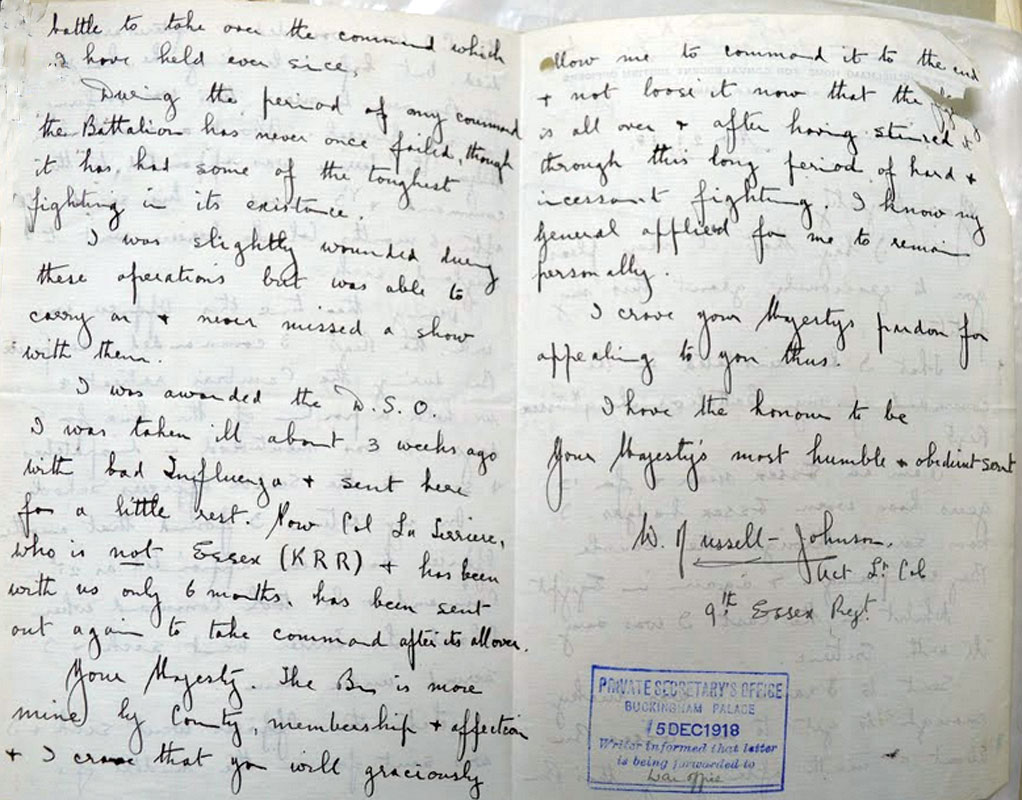 battle to take over the command which
I have held ever since.
During the period of my command
the Battalion has never once failed, though
it has had some of the toughest
fighting in its existance.
I was slightly wounded during
these operations but was able to
carry on + never missed a show
with them.
I was awarded the D.S.O.
I was taken ill about 3 weeks ago
with bad Influenza + sent here
for a little rest. Now Col
who is not Essex (KRR) + has been
with us only 6 months. has been sent
out again to take command after its all over.
Your Majesty. The Bn is more
mine by County, membership + affection
+ I crave that you will graciously
allow me to command it to the end
+ not loose it now that the
is all over + after having it
through this long period of hard +
incessant fighting. I know my
General applied for me to remain
personally.
I crave your Majestys pardon for
appealing to you thus.
I have the honour to be
Your Majesty's most humble + obedient servt
W. Russell-Johnson.
Act Lt Col
9th Essex Regt.
PRIVATE SECRETARY'S OFFICE
BUCKINGHAM PALACE
5 DEC 1918
Writer informed that letter
is being forwarded to
War Office